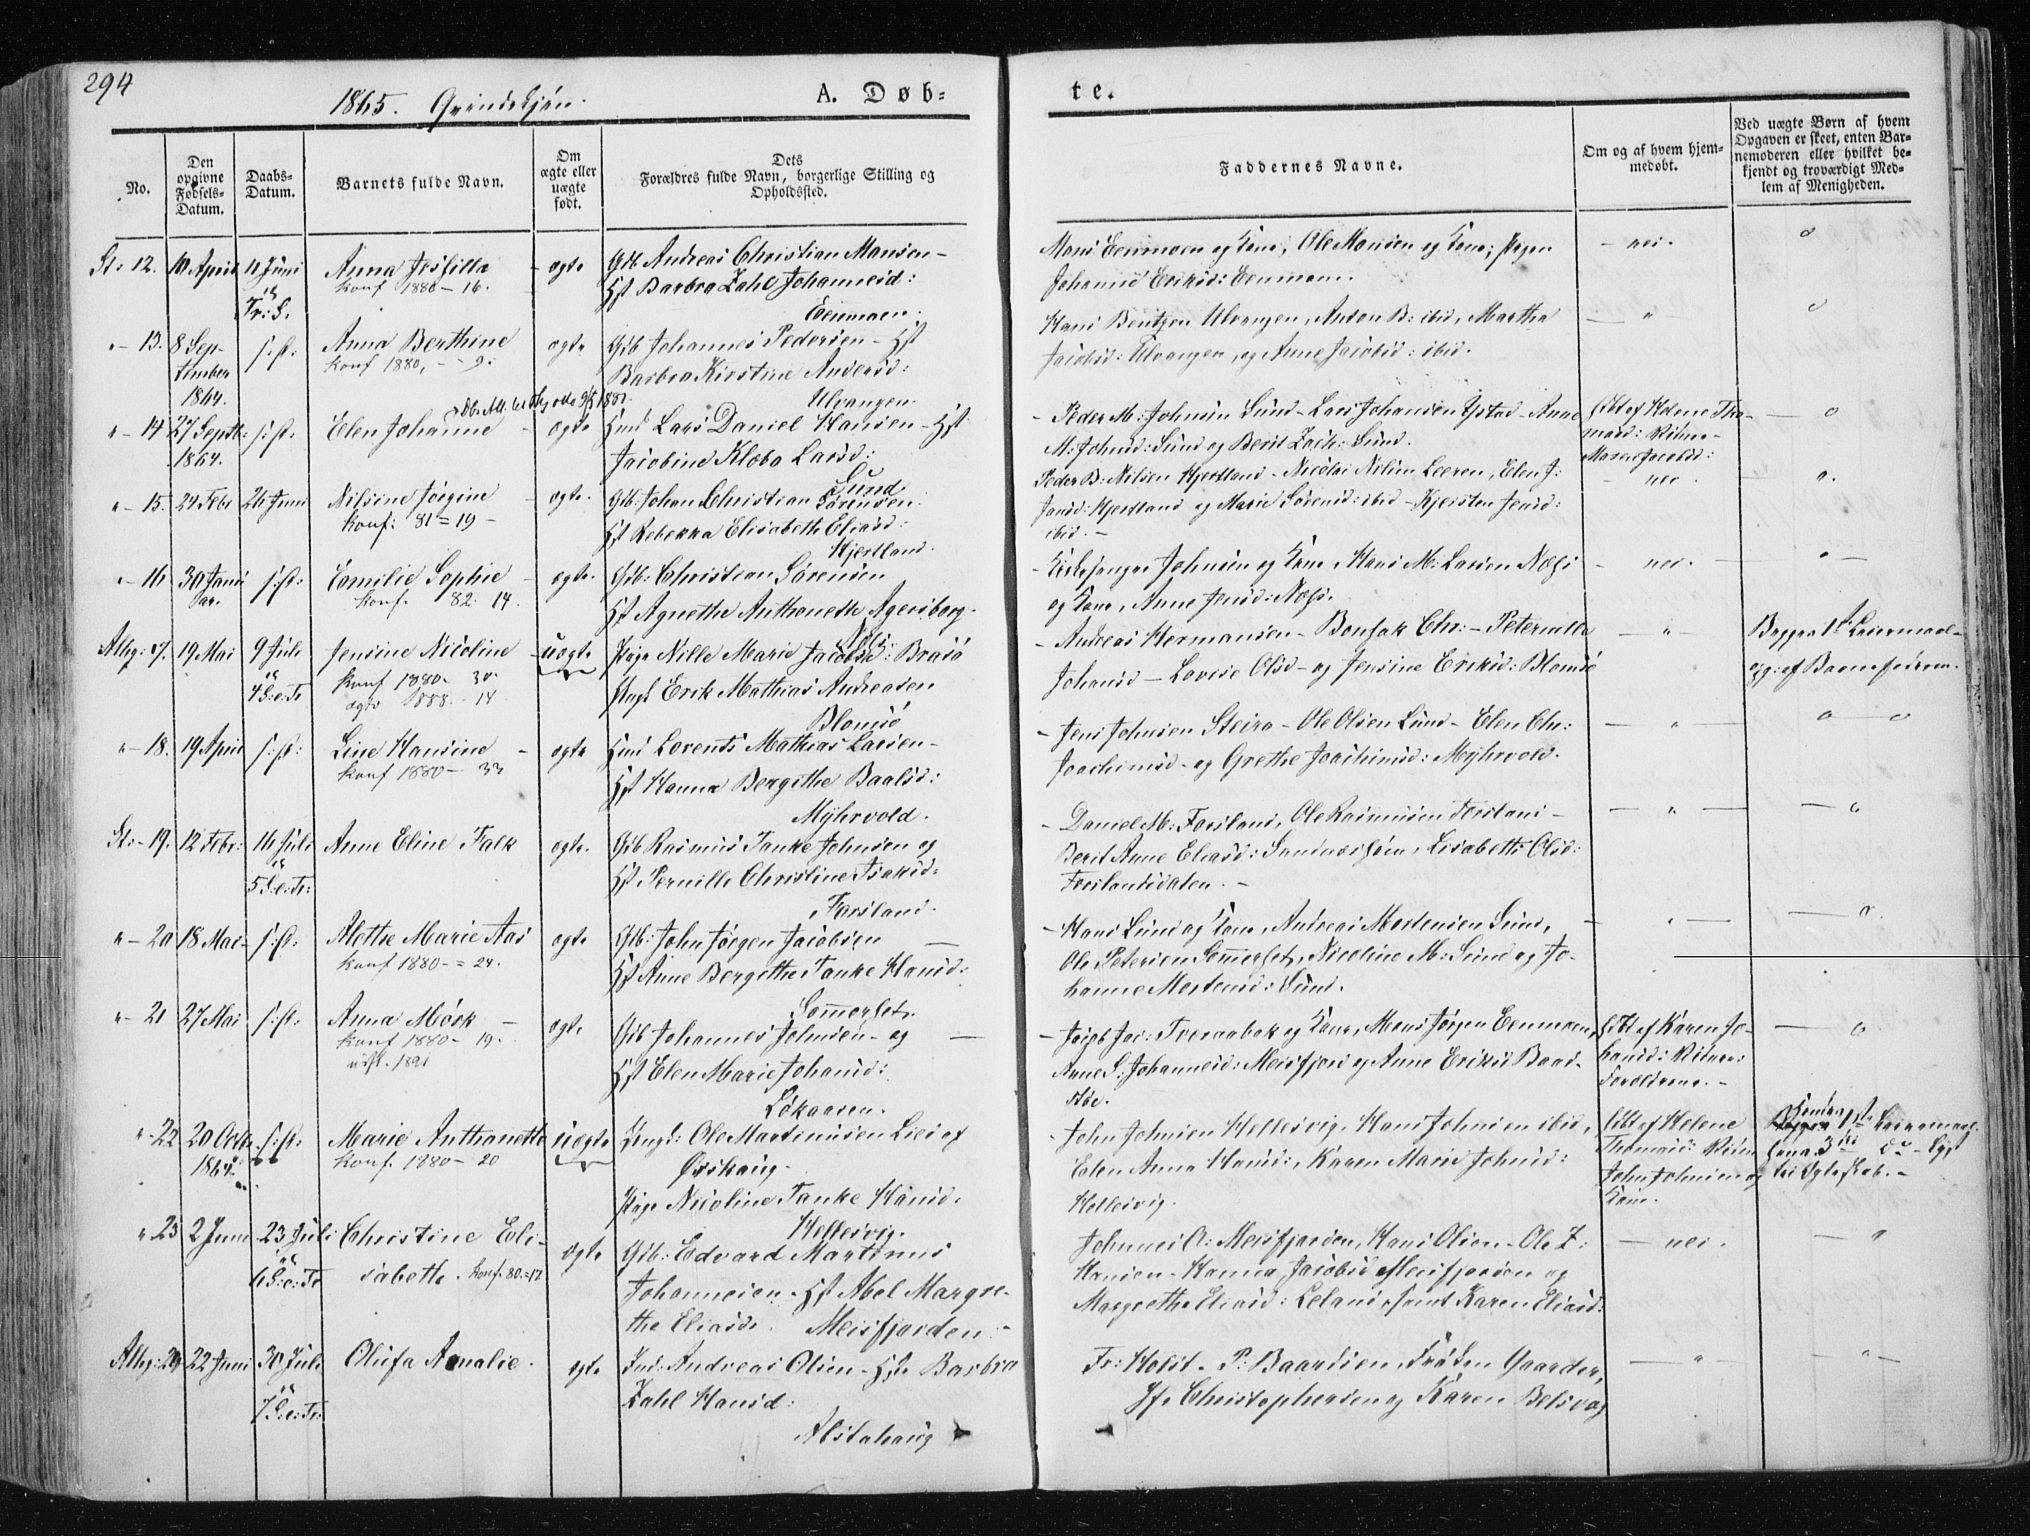 294
1865. Qvindekjön.
A. Døb-
te.
No.
Den opgivne Fødsels-Datum.
Daabs-Datum.
Barnets fulde Navn.
Om ægte eller uægte født.
Dets Forældres fulde Navn, borgerlige Stilling og Opholdssted.
Faddernes Navne.
Om og af hvem hjem-medøbt.
Ved uægte Børn af hvem Opgaven er skeet, enten Bar-nemoderen eller hvilket be-kjendt og troværdigt Med-lem af Menigheden.
St: 12. 10 April 11 Juni Anna - ægte Gb Andreas Christian Monsen -
Tr: S. konf 1880 - 16. Hst Barbra Zahl Johannesd:
Eenmoen.
Mons Eenmoen og Kone, Ole Monsen og Kone, Pigen - nei. o
Johanne Eriksd: Eenmoen.
" - 13. 8 Sep- s: st: Anna Berthine ægte Gb Johannes Pedersen - Hst
tember konf 1880, - 9. Barbra Kirstine Andersd:
1864. Ulvangen.
Hans Bentzen Ulvangen, Anton B: ibid, Martha - " - o
Jacobsd: Ulvangen, og Anne Jacobsd: ibid.
" - 14 27 Septb: s: st: Elen Johanne - ægte Hmd Lars Daniel Hansen - Hst
1864. Jacobine Klæbo Larsd:
Sund
- Peder M: Johnsen Sund - Lars Johansen Ystad - Anne døbt af Helene Tho- - o
M: Johnsd: Sund og Berit Zach: Sund. masd:
" - 15. 24 Febr 26 Juni Nilsine Jørgine - ægte. Gb: Johan Christian Sørensen.
konf: 81 = 19 - Hst Rebekka Elisabeth Eliasd:
Hjertland.
Peder B: Nilsen Hjertland - Nicolai Nilsen Leeren, Elen J: - nei. - ".
Jansd: Hjertland og Marie Sørensd: ibid - Kjersten Jensd:
ibid. -
" - 16 30 Janu s: st: Emilie Sophie - ægte. Gb: Christian Sörensen
ar. konf. 82. 14. Hst Agnethe Anthonette Agersborg.
- Kirkesanger Johnsen og Kone, Hans M: Larsen Næss - nei. - " -
og Kone, Anne Jensd: Næss.
Alhg: 17. 19 Mai 9 Juli Jensine Nicoline - uægte Pige Nille Marie Jacobsd: Brasö
4 S: e: Tr konf 1880 - 30. Ungk Erik Mathias Andreasen
1888 - 14 Blomsö
- Andreas Hermansen - Bonsak Chr: - Peternille - " - Begges 1ste Leiermaal -
Johansd - Lovise Olsd - og Jensine Eriksd: Blomsö opg: af Barnefaderen.
" - 18. 19 April s: st: Line Hansine - ægte Hmd Lorents Mathias Larsen -
konf 1880 - 33 Hst Hanna Bergithe Baalsd:
Myhrvold.
- Jens Johnsen Steiro - Ole Olsen Lund - Elen Chr: - " - o - o
Joachimsd - og Grethe Joachimsd: Myhrvold.
St: - 19. 12 Febr: 16 Juli Anne Eline Falk ægte. Gb Rasmus Tanke Johnsen og
5 S: e: Tr: Hst Pernille Christine Isaksd:
Forsland.
- Daniel M: Forsland, Ole Rasmussen Forsland - - " - - o
Berit Anne Eliasd: Sandnæssjöen, Lisabeth Olsd:
" - 20 18 Mai - s: st: Alethe Marie Aas ægte Gb: John Jörgen Jacobsen -
konf 1880 - = 24. Hst Anne Bergithe Tanke Hansd:
Sommerset.
- Hans Lund og Kone, Andreas Mortensen Sund, - " - - o.
Ole Petersen Sommerset, Nicoline M: Sund og Jo-
hanne Mortensd: Sund.
" - 21 27 Mai s: st: Anna Mörk - ægte. Gb Johannes Johnsen - og -
konf 1880 - 19. Hst Elen Marie Johansd:
1891 Lökaasen.
- Jacob Jac: Tveraabak og Kone, Mons Jörgen Eenmoen, døbt af Karen Jo- - o
Anne S: Johannesd: Meisfjord og Anne Eriksd Baad- hansd:
stöe. Foreldrene. -
" - 22 20 Octb s: st: Marie Anthonette uægte Ungk: Ole Martinussen Lies af
1864. konf. 1880 - 20 Örskoug.
Pige Nicoline Tanke Hansd.
Hellesvig.
- John Johnsen Hellesvig, Hans Johnsen ibid, døbt af Helene 1ste Leiermaal.
Elen Anna Hansd:, Karen Marie Johnsd: Thomasd: hans 3die do - Lyst
Hellesvig. John Johnsen og til Egteskab. -
Kone.
" 23 2 Juni 23 Juli Christine Eli- ægte Gb: Edvard Martinus
6 S: e: Tr sabeth. konf. 80. = 12 Johannesen - Hst Abel Margre-
the Eliasd: Meisfjorden. -
Johannes O: Meisfjorden, Hans Olsen - Ole Z: - nei. - "
Hansen - Hanna Jacobsd Meisfjorden og
Margrethe Eliasd: Leland, samt Karen Eliasd:
Alhg: 24 22 Juni 30 Juli Olufa Amalie. ægte Ind: Andreas Olsen - Hst: Barbra
7 S: e: Tr: Zahl Hansd:
Alstahoug
Fr: Holst - P: Baardsen, Frøken Gaarder, - " - - " -
Jfr Christophersen og Karen Belsvog